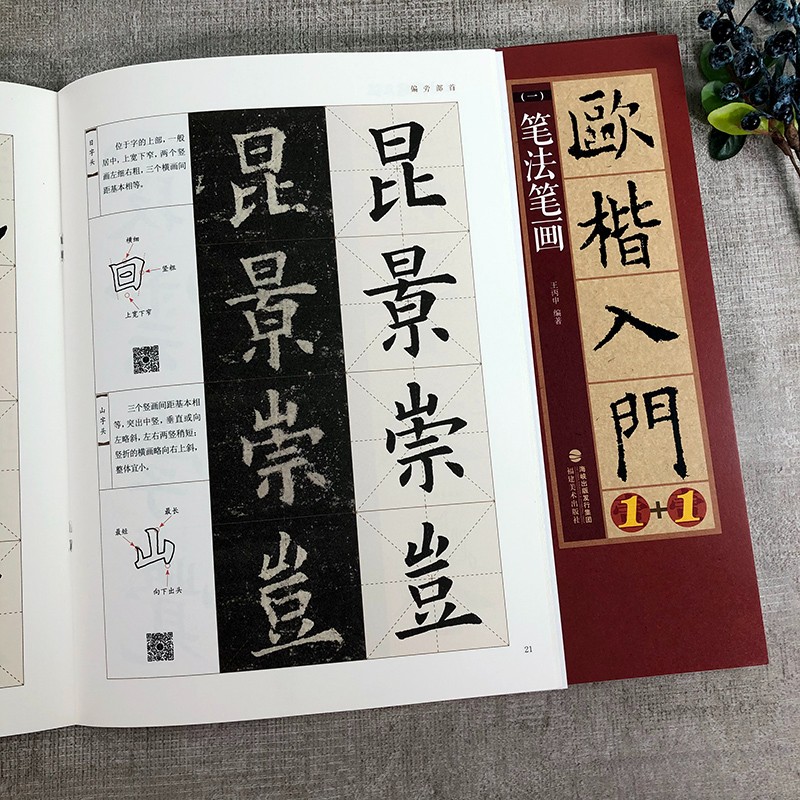 偏旁部首
日字头
位于字的上部,一般
居中,上宽下窄,两个竖
画左细右粗,三个横画间
距基本相等。
横细
竖粗
上宽下窄
昆
昆
景
景
山字头
三个竖画间距基本相
等,突出中竖,垂直或向
左略斜,左右两竖稍短;
竖折的横画略向右上斜,
整体宜小。
最长
最短
向下出头
崇
崇
豈
豈
21
歐楷入門
1+1
(一)
笔法笔画
王丙申 编著
海峡出版发行集团
福建美术出版社